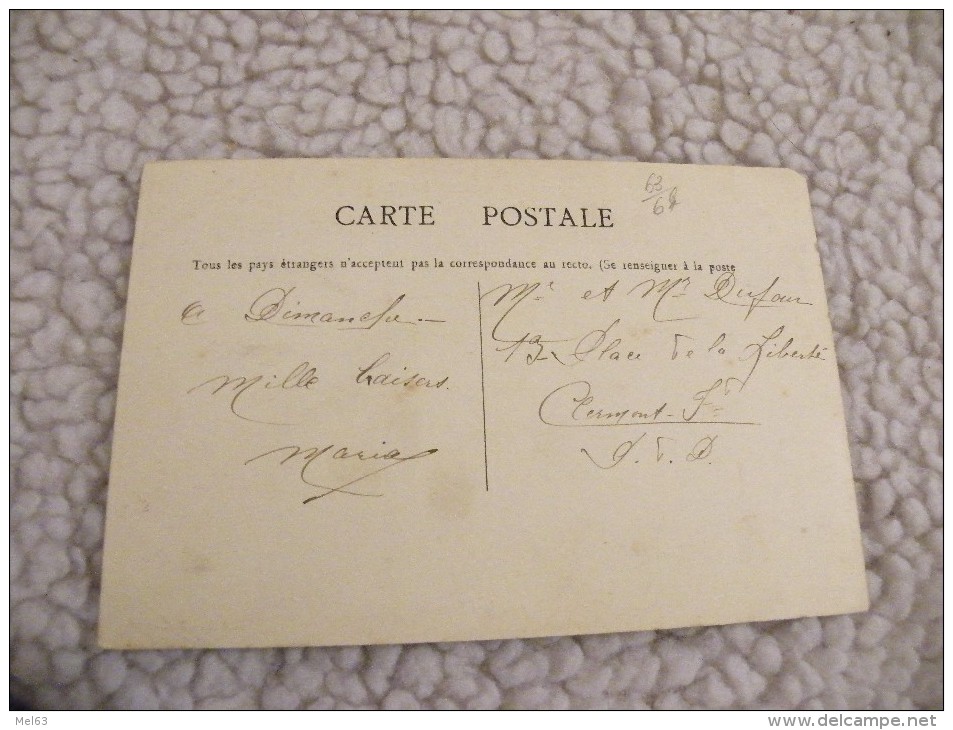 63
6
CARTE POSTALE
Tous les pays étrangers n'acceptent pas la correspondance au recto. (Se renseigner à la poste
a Dimanche
Mille baisers.
Maria
Mr et Mr Dufour
13 Place de la Liberté
Clermont-Fd
P. d. D.
Mel63
www.delcampe.net